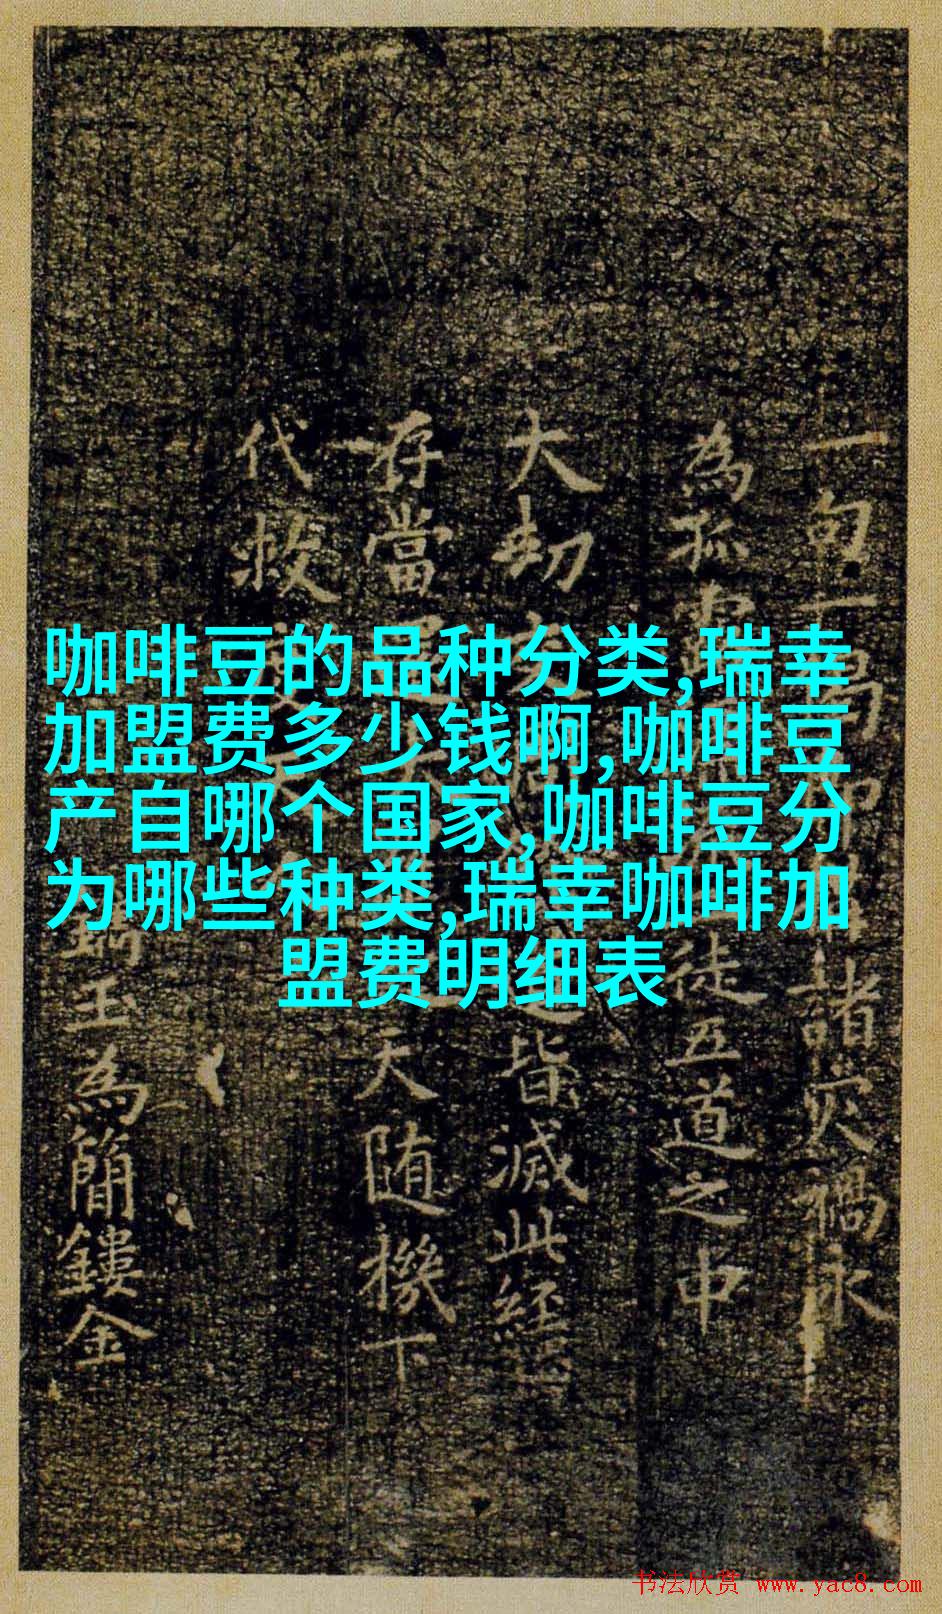 咖啡豆的品种分类,瑞幸
加盟费多少钱啊,咖啡豆
产自哪个国家,咖啡豆分
为哪些种类,瑞幸咖啡加
盟费明细表
一句一
諸灾禍永
為孤
徒五道之中
大劫
皆滅此經
存當
天随機下
代救
瑞玉為簡鏤金
书法欣赏 www.yac8.com